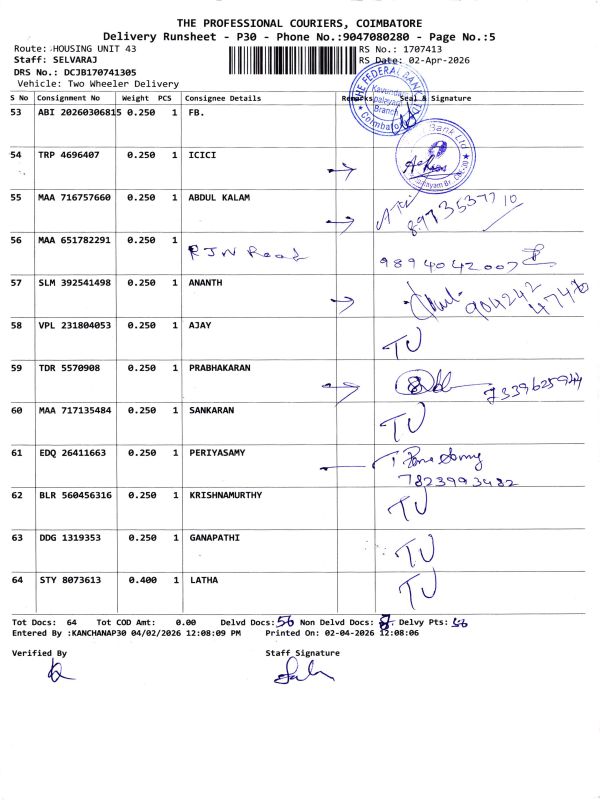 THE PROFESSIONAL COURIERS, COIMBATORE
Delivery Runsheet - P30 - Phone No.:9047080280 - Page No.:5
Route: HOUSING UNIT 43 RS No.: 1707413
Staff: SELVARAJ RS Date: 02-Apr-2026
DRS No.: DCJB170741305
Vehicle: Two Wheeler Delivery
S No Consignment No Weight PCS Consignee Details Remarks Seal & Signature
53 ABI 20260306815 0.250 1 FB.
THE FEDERAL BANK
Kavunda
palayam
Branch
Coimbatore
54 TRP 4696407 0.250 1 ICICI
Bank Ltd
55 MAA 716757660 0.250 1 ABDUL KALAM 8973537710
56 MAA 651782291 0.250 1 RJN Road 9894042007
57 SLM 392541498 0.250 1 ANANTH 904242
4747
58 VPL 231804053 0.250 1 AJAY TU
59 TDR 5570908 0.250 1 PRABHAKARAN 7339625944
60 MAA 717135484 0.250 1 SANKARAN TU
61 EDQ 26411663 0.250 1 PERIYASAMY
7823993482
62 BLR 560456316 0.250 1 KRISHNAMURTHY TU
63 DDG 1319353 0.250 1 GANAPATHI TU
64 STY 8073613 0.400 1 LATHA TU
Tot Docs: 64 Tot COD Amt: 0.00 Delvd Docs: 56 Non Delvd Docs: Delvy Pts:
Entered By :KANCHANAP30 04/02/2026 12:08:09 PM Printed On: 02-04-2026 12:08:06
Verified By Staff Signature